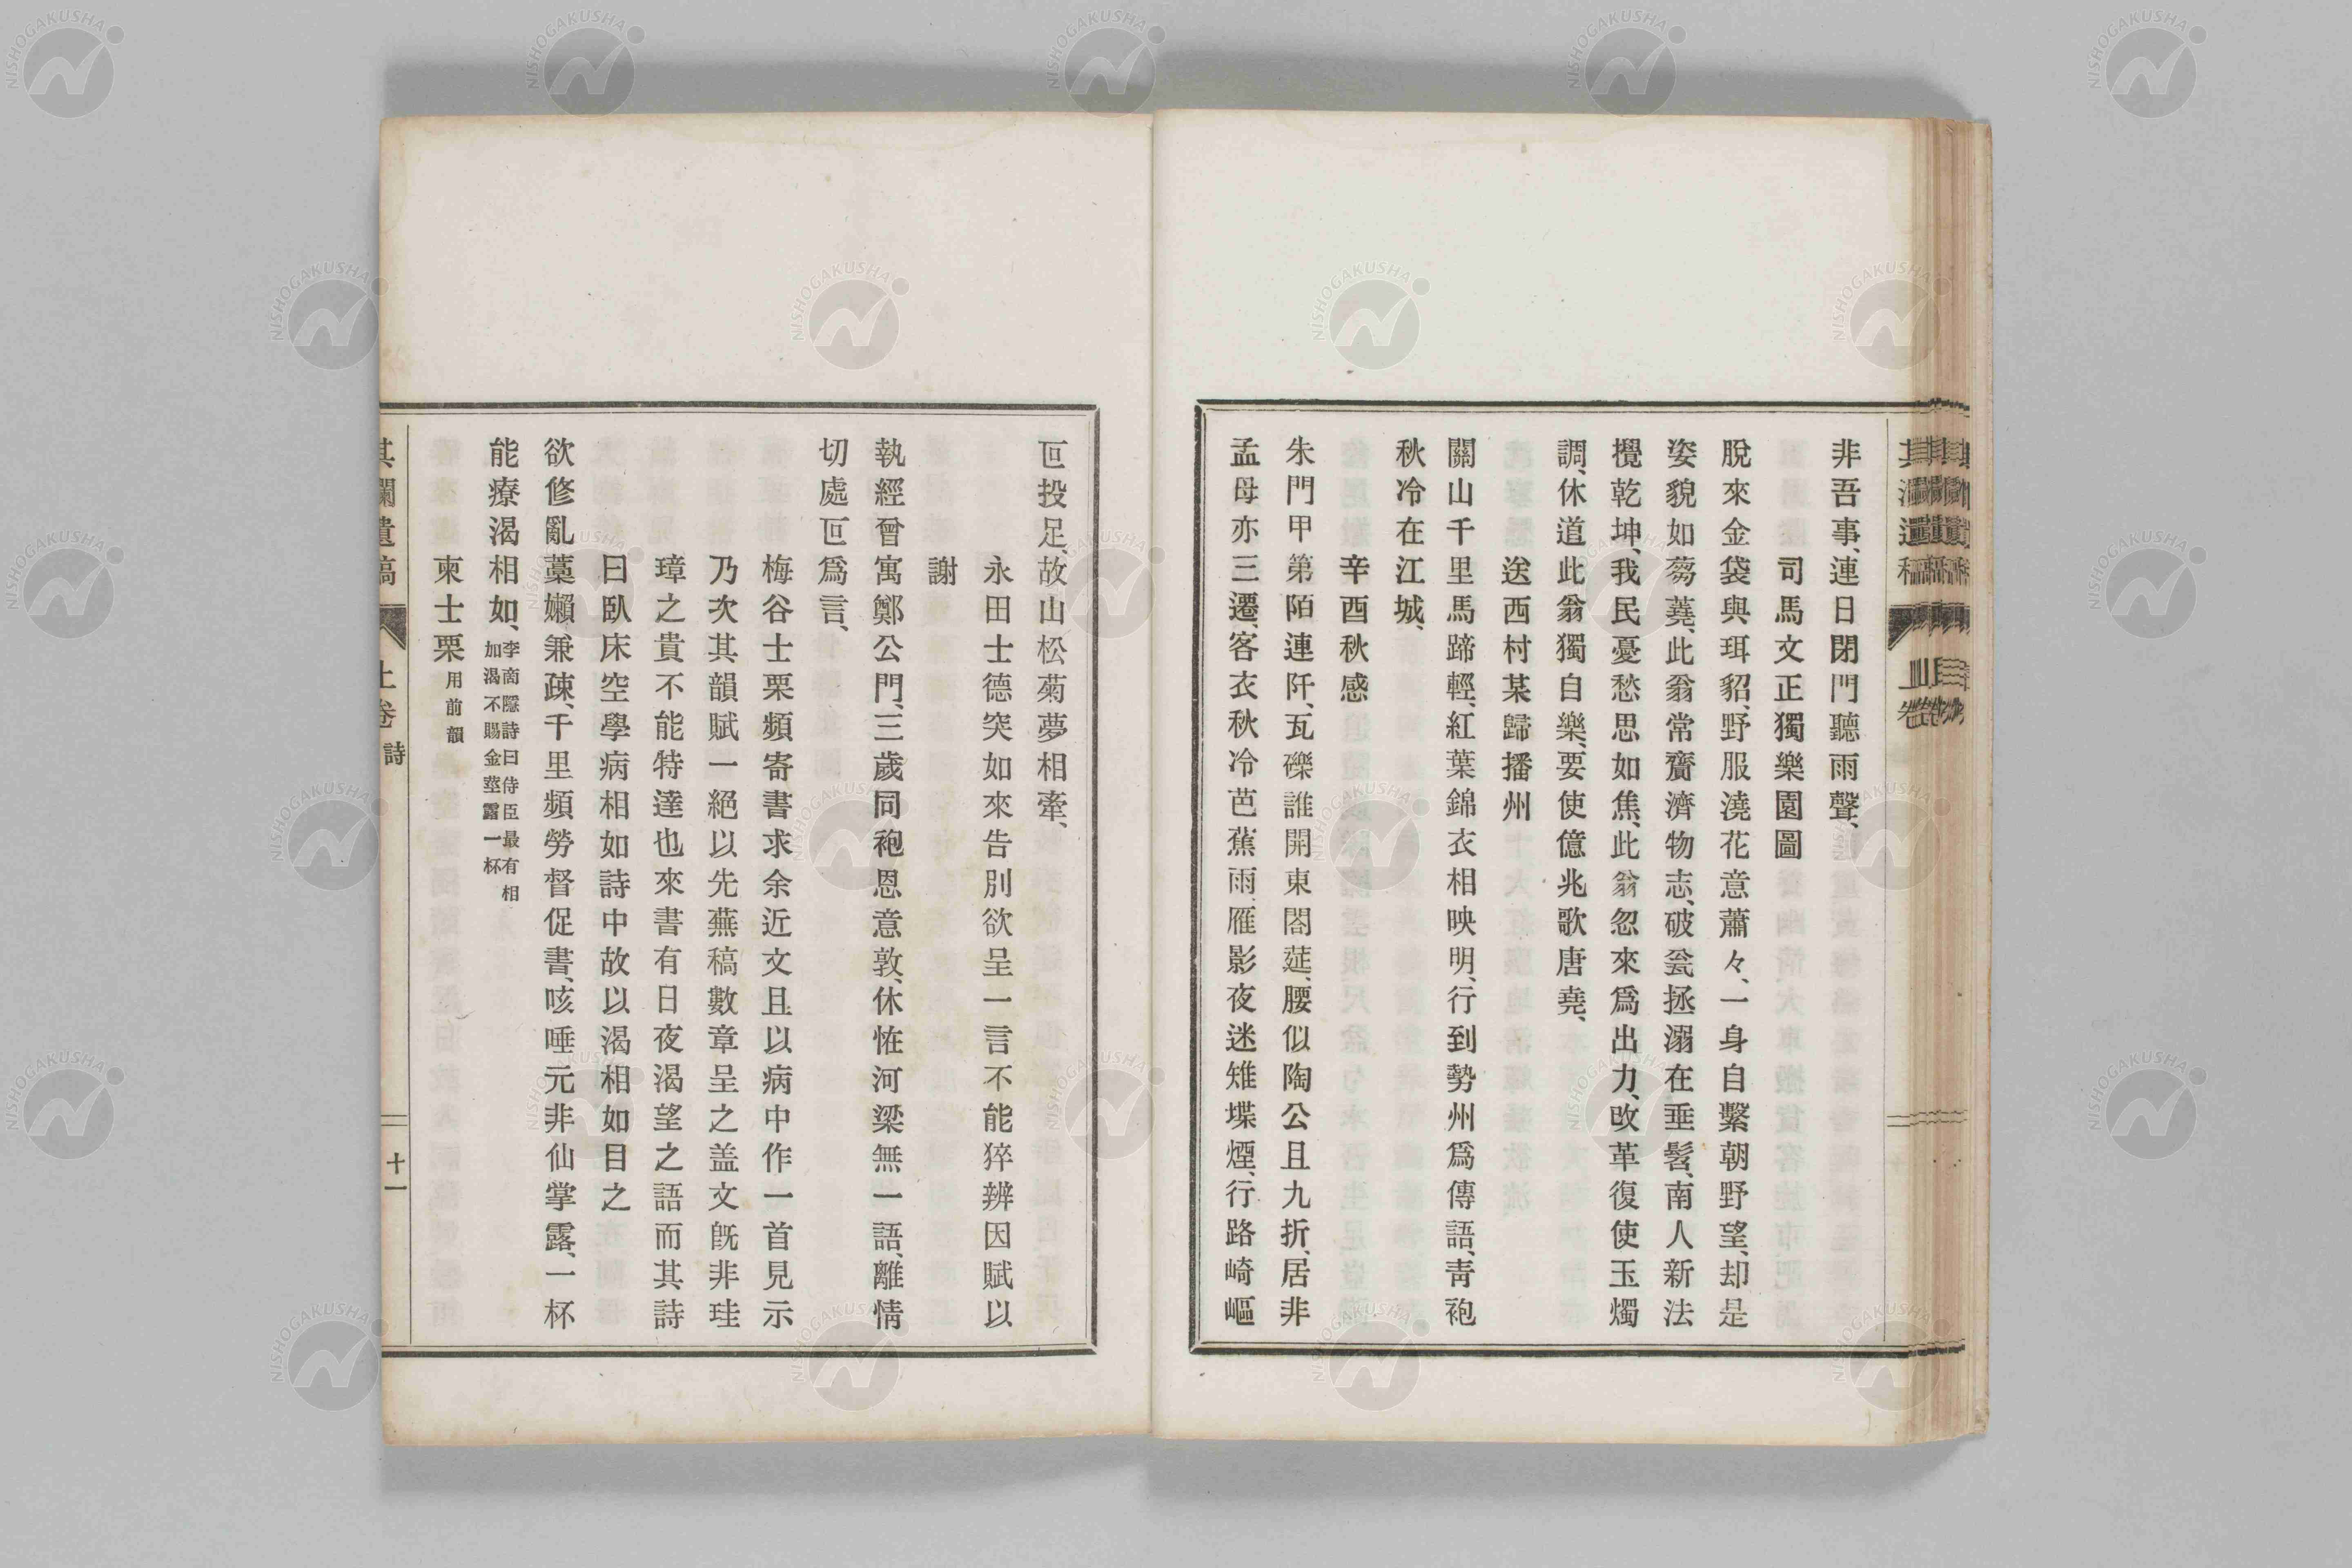 非吾事、連日閉門聽雨聲、
司馬文正獨樂園圖
脫來金袋與珥貂、野服澆花意蕭々、一身自繫朝野望、却是
姿貌如蒭蕘、此翁常齎濟物志、破瓮拯溺在垂髫、南人新法
攪乾坤、我民憂愁思如焦、此翁忽來爲出力、改革復使玉燭
調、休道此翁獨自樂、要使億兆歌唐堯、
送西村某歸播州
關山千里馬蹄輕、紅葉錦衣相映明、行到勢州爲傳語、靑袍
秋冷在江城、
辛酉秋感
朱門甲第陌連阡、瓦礫誰開東閤莚、腰似陶公且九折、居非
孟母亦三遷、客衣秋冷芭蕉雨、雁影夜迷雉堞煙、行路崎嶇
叵投足、故山松菊夢相牽、
永田士德突如來告別欲呈一言不能猝辨因賦以
謝
執經曾寓鄭公門、三歲同袍恩意敦、休恠河梁無一語、離情
切處叵爲言、
梅谷士栗頻寄書求余近文且以病中作一首見示
乃次其韻賦一絕以先蕪稿數章呈之盖文旣非珪
璋之貴不能特達也來書有日夜渴望之語而其詩
曰臥床空學病相如詩中故以渴相如目之
欲修亂藁嬾兼疎、千里頻勞督促書、咳唾元非仙掌露、一杯
能療渴相如、李商隱詩曰侍臣最有相
加渴不賜金莖露一杯
柬士栗 用前韻
其瀾遺稿 上卷 詩 十一